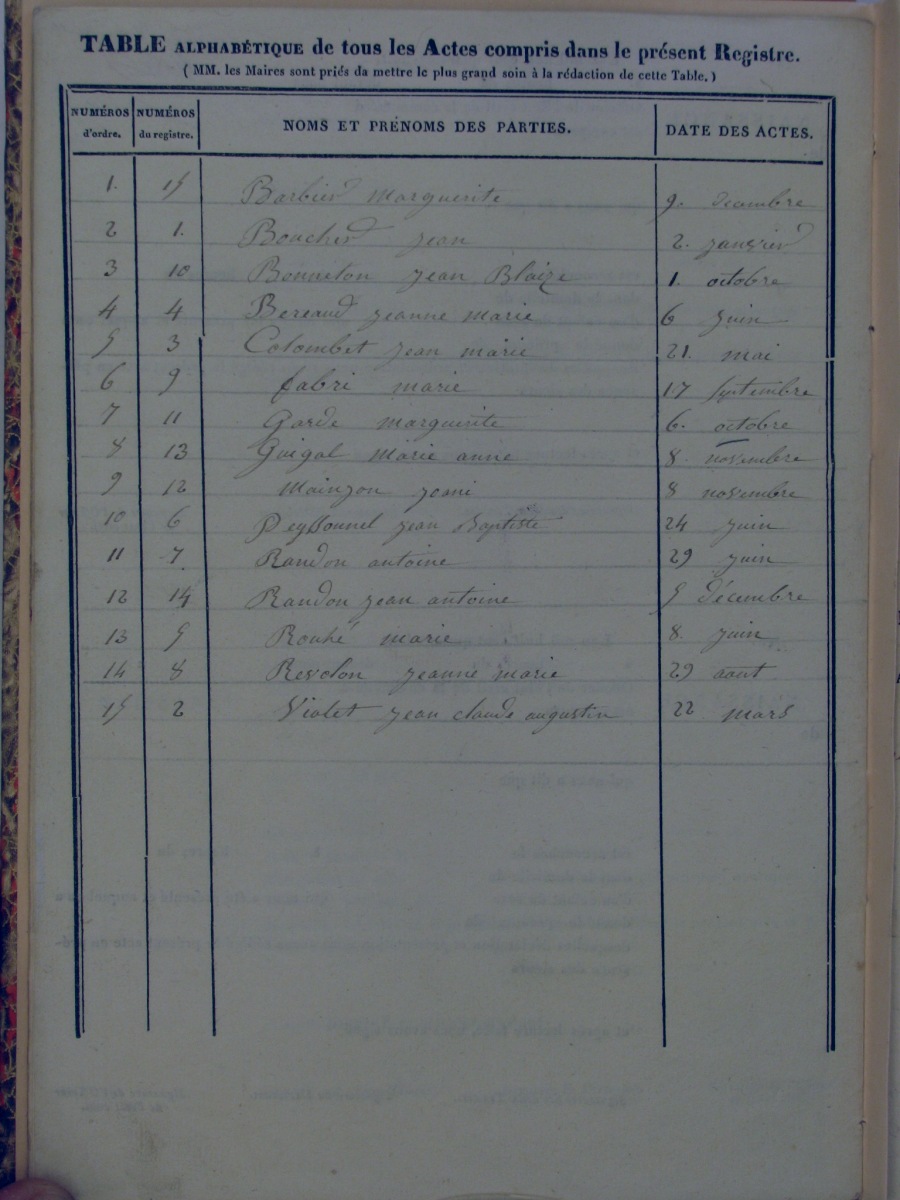 TABLE ALPHABÉTIQUE de tous les Actes compris dans le présent Registre.
( MM. les Maires sont priés da mettre le plus grand soin à la rédaction de cette Table. )
NUMÉROS d'ordre. NUMÉROS du registre. NOMS ET PRÉNOMS DES PARTIES. DATE DES ACTES.
1. 15 Barbier marguerite 9. decembre
2 1. Boucher jean 2. janvier
3 10 Bonneton jean Blaize 1. octobre
4 4 Bereaud jeanne marie 6 juin
5 3 Colombet jean marie 21. mai
6 9 fabri marie 17 septembre
7 11 Garde marguerite 6. octobre
8 13 Guigal marie anne 8. novembre
9 12 8 novembre
10 6 Peyssonnel jean Baptiste 24 juin
11 7 Randon antoine 29 juin
12 14 Randon jean antoine 5 décembre
13 5 Rouhé marie 8. juin
14 8 Revolon jeanne marie 29 aout
15 2 Violet jean claude augustin 22 mars